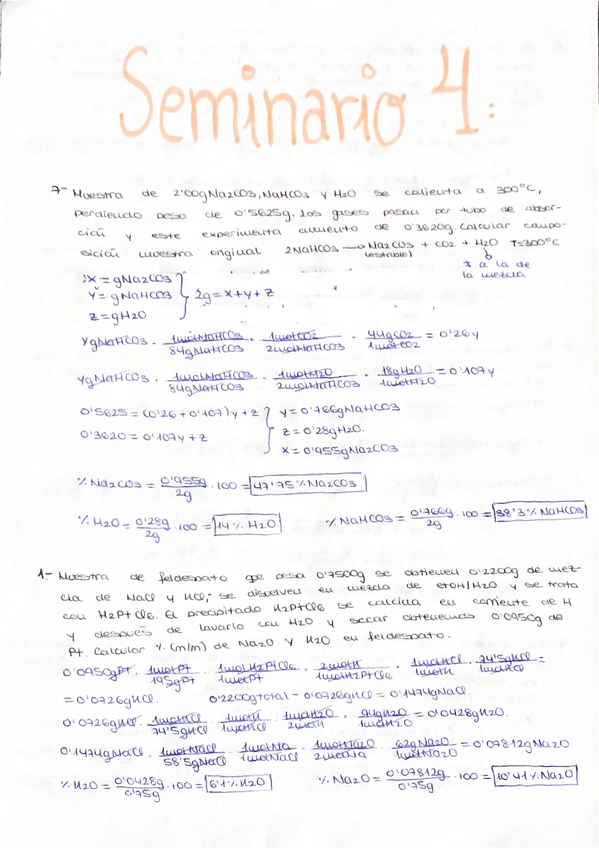 Seminario 4:
7- Muestra de 2'00g Na2CO3, NaHCO3 y H2O se calienta a 300°C,
perdiendo peso de 0'5625g. Los gases pasan por tubo de absor-
ción y este experimenta aumento de 0'3620g. Calcular compo-
sición muestra original 2NaHCO3 → Na2CO3 + CO2 + H2O T=300°C
(estable)
≠ a la de
la mezcla
X = gNa2CO3
Y = gNaHCO3 } 2g = x+y+z
Z = gH2O
YgNaHCO3 · 1molNaHCO3/84gNaHCO3 · 1molCO2/2molNaHCO3 · 44gCO2/1molCO2 = 0'26y
YgNaHCO3 · 1molNaHCO3/84gNaHCO3 · 1molH2O/2molNaHCO3 · 18gH2O/1molH2O = 0'107y
0'5625 = (0'26 + 0'107)y + z } y = 0'766gNaHCO3
0'3620 = 0'107y + z z = 0'28gH2O.
x = 0'955gNa2CO3
% Na2CO3 = 0'955g/2g · 100 = 47'75 % Na2CO3
% H2O = 0'28g/2g · 100 = 14 % H2O % NaHCO3 = 0'766g/2g · 100 = 38'3 % NaHCO3
1.- Muestra de feldespato que pesa 0'7500g se obtienen 0'2200g de mez-
cla de NaCl y KCl, se disuelven en mezcla de etOH/H2O y se trata
con H2PtCl6. El precipitado K2PtCl6 se calcina en corriente de H
y después de lavarlo con H2O y secar obtenemos 0'0950g de
Pt. Calcular % (m/m) de Na2O y K2O en feldespato.
0'0950gPt · 1molPt/195gPt · 1molK2PtCl6/1molPt · 2molK/1molK2PtCl6 · 1molKCl/1molK · 74'5gKCl/1molKCl =
= 0'0726gKCl. 0'2200gtotal - 0'0726gKCl = 0'1474gNaCl
0'0726gKCl · 1molKCl/74'5gKCl · 1molK/1molKCl · 1molK2O/2molK · 94gK2O/1molK2O = 0'0428gK2O.
0'1474gNaCl · 1molNaCl/58'5gNaCl · 1molNa/1molNaCl · 1molNa2O/2molNa · 62gNa2O/1molNa2O = 0'07812gNa2O
% K2O = 0'0428g/0'75g · 100 = 6'1 % K2O % Na2O = 0'07812g/0'75g · 100 = 10'41 % Na2O